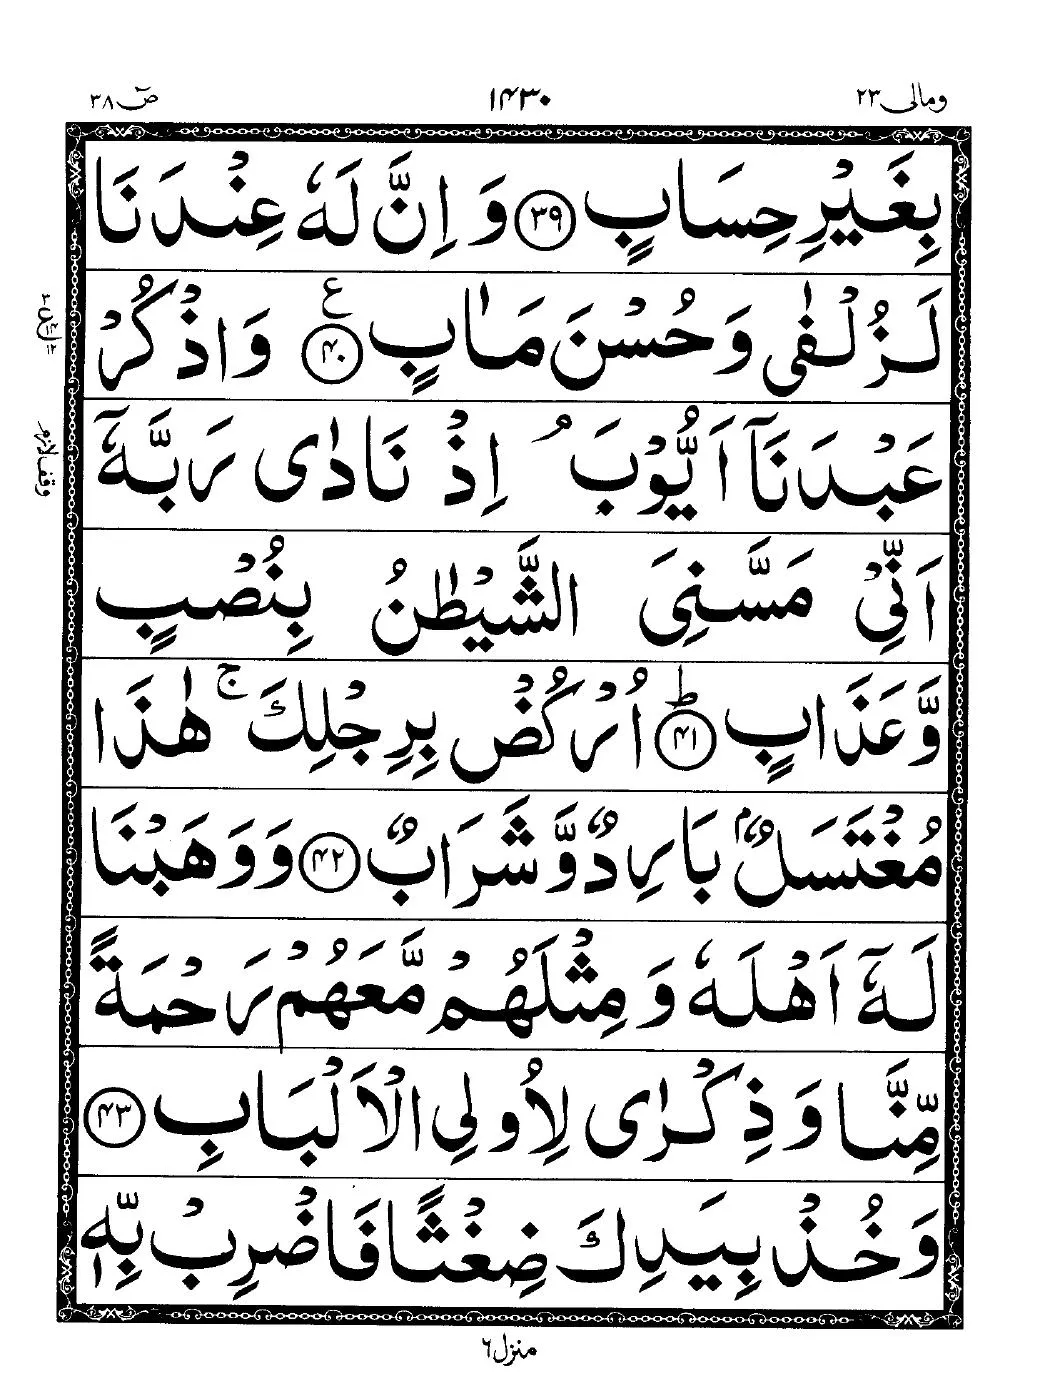 ومالی ٢٣
١٤٣٠
صٓ ٣٨
بِغَیْرِ حِسَابٍ ﴿٣٩﴾ وَ اِنَّ لَهٗ عِنْدَنَا
لَزُلْفٰی وَ حُسْنَ مَاٰبٍ ﴿٤٠﴾ ع وَ اذْكُرْ
عَبْدَنَاۤ اَیُّوْبَ ۘ اِذْ نَادٰی رَبَّهٗۤ
اَنِّیْ مَسَّنِیَ الشَّیْطٰنُ بِنُصْبٍ
وَّ عَذَابٍ ﴿٤١﴾ ؕ اُرْكُضْ بِرِجْلِكَ ۚ هٰذَا
مُغْتَسَلٌۢ بَارِدٌ وَّ شَرَابٌ ﴿٤٢﴾ وَ وَهَبْنَا
لَهٗۤ اَهْلَهٗ وَ مِثْلَهُمْ مَّعَهُمْ رَحْمَةً
مِّنَّا وَ ذِكْرٰی لِاُولِی الْاَلْبَابِ ﴿٤٣﴾
وَ خُذْ بِیَدِكَ ضِغْثًا فَاضْرِبْ بِّهٖ
٣
ع
١٤
١٢
وقف لازم
منزل ٦